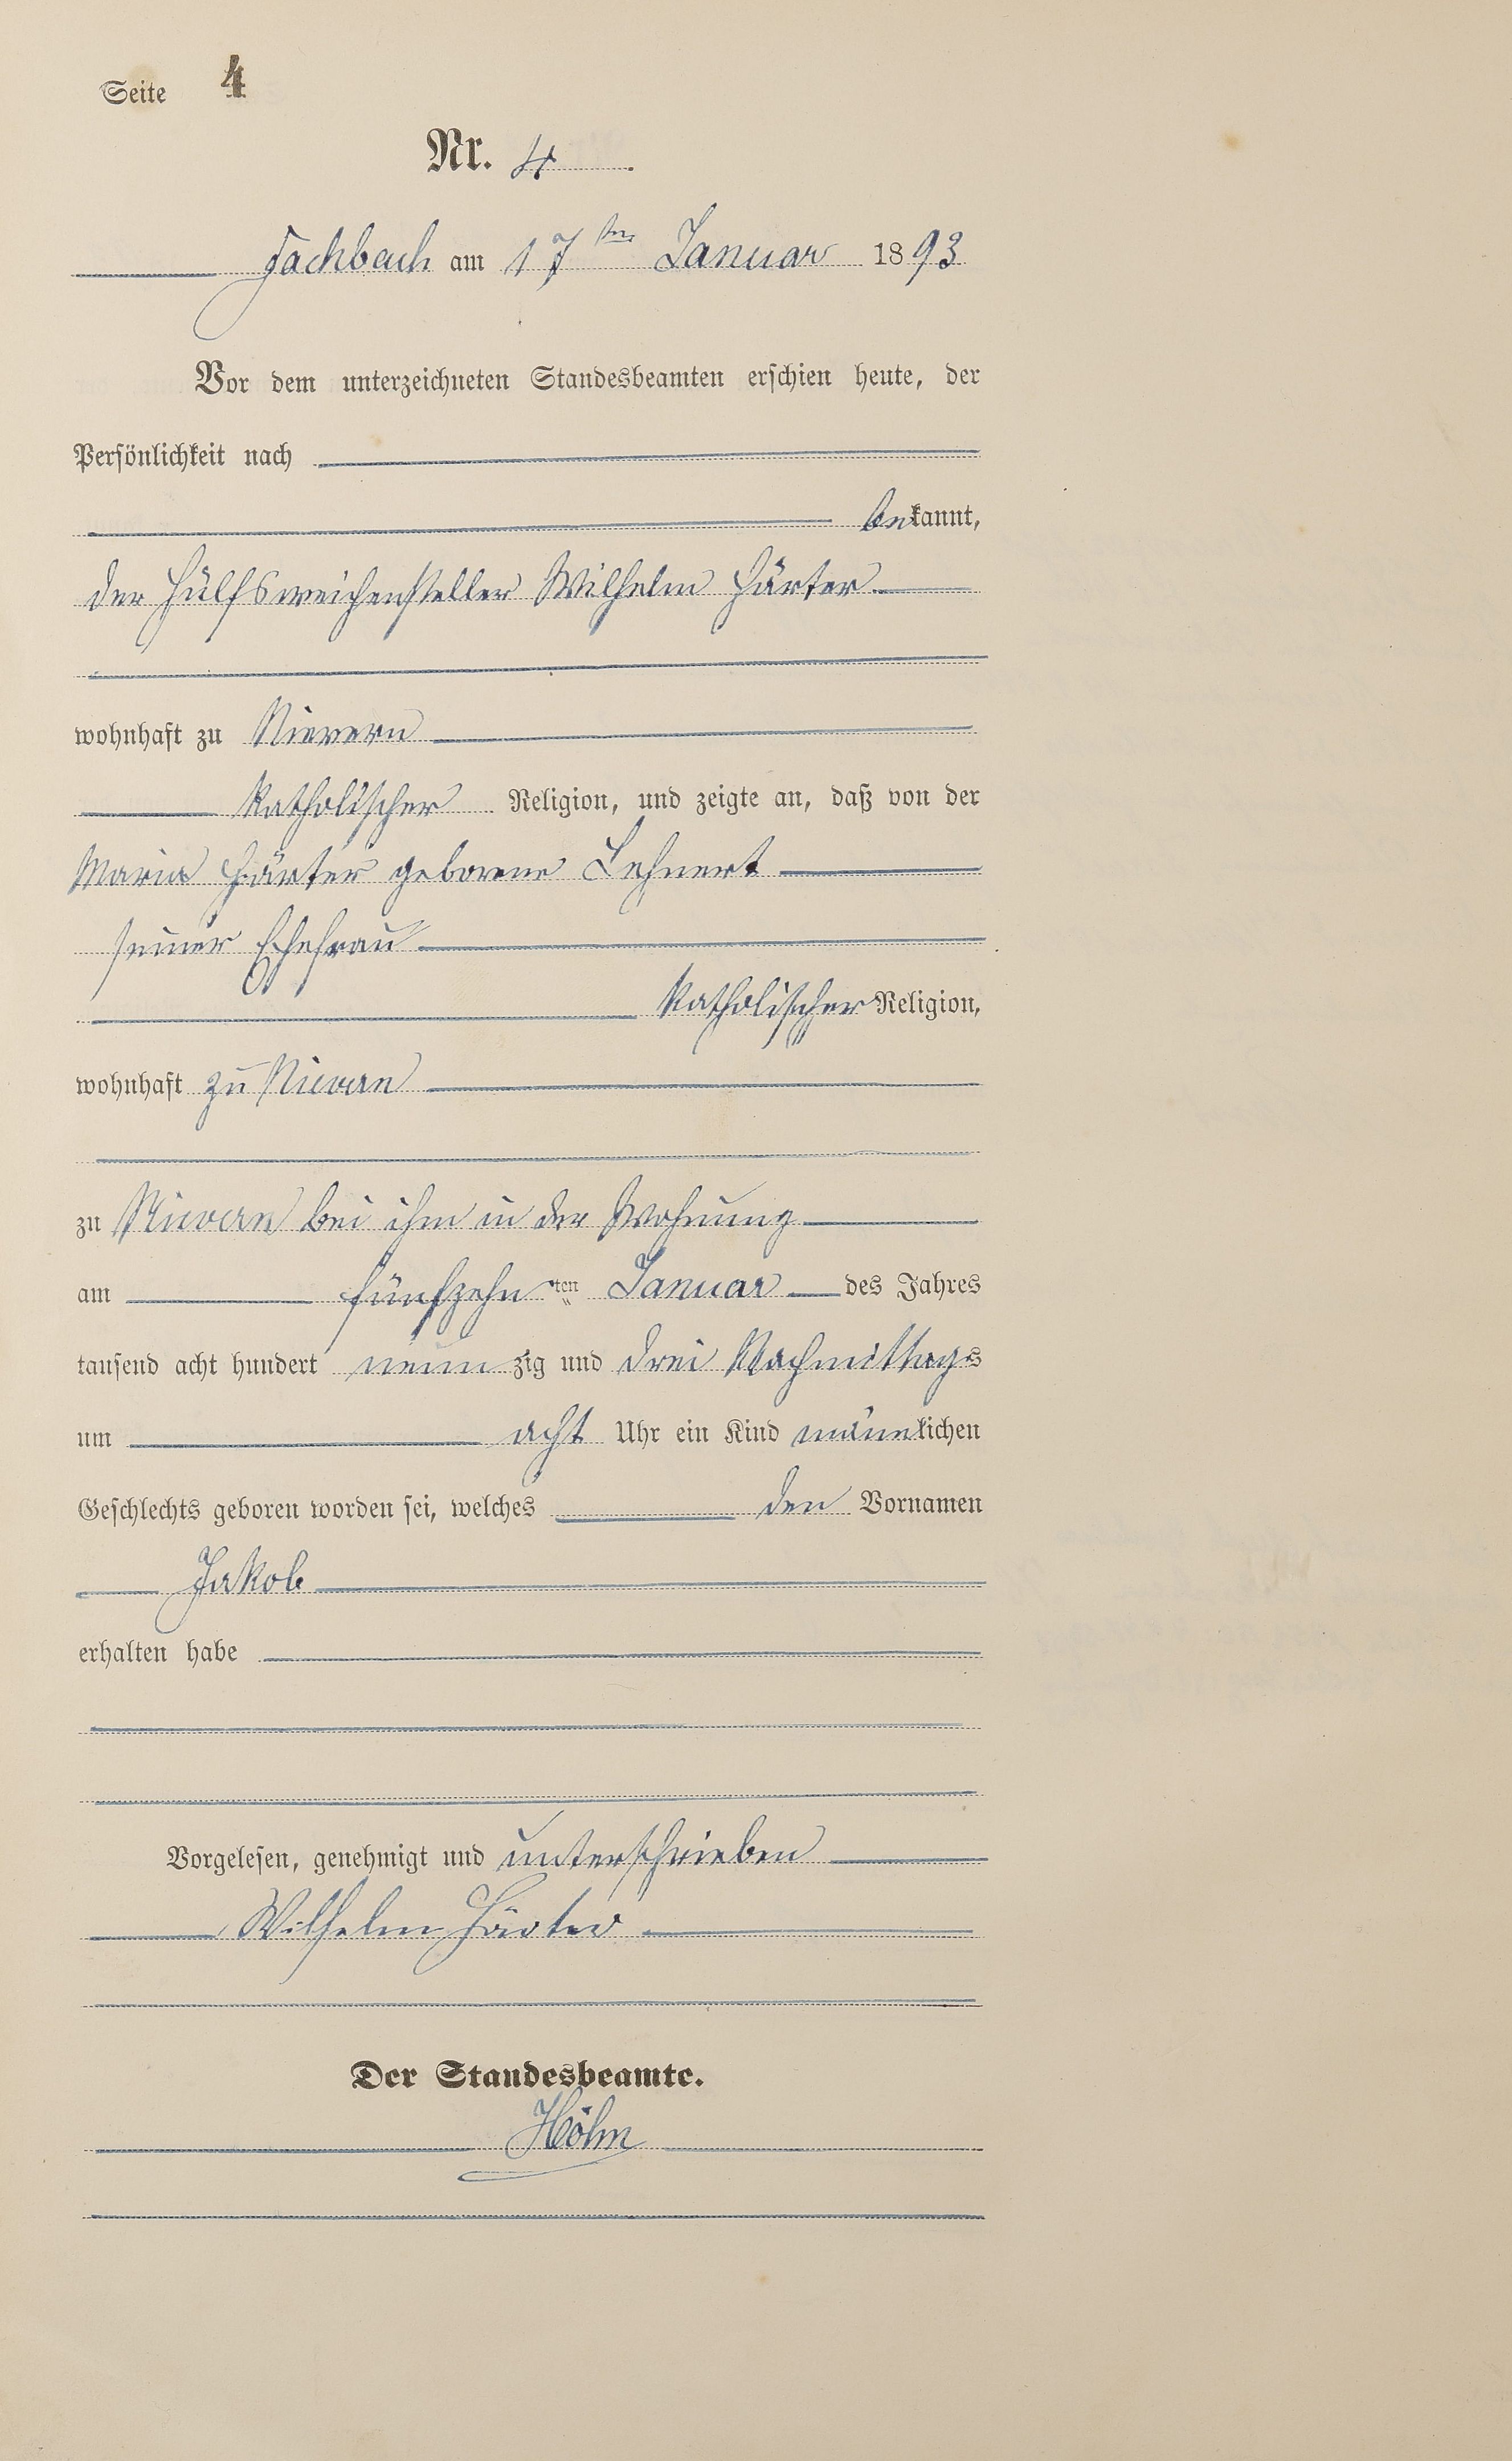 Seite 4
Nr. 4.
Fachbach am 17ten Januar 1893
Vor dem unterzeichneten Standesbeamten erschien heute, der
Persönlichkeit nach
bekannt,
der Hülfsweichensteller Wilhelm Härter
wohnhaft zu Nievern
katholischer Religion, und zeigte an, daß von der
Maria Härter geborene Lehnert
seiner Ehefrau
katholischer Religion,
wohnhaft zu Nievern
zu Nievern bei ihm in der Wohnung
am fünfzehnten Januar des Jahres
tausend acht hundert neunzig und drei Nachmittags
um acht Uhr ein Kind männlichen
Geschlechts geboren worden sei, welches den Vornamen
Jakob
erhalten habe
Vorgelesen, genehmigt und unterschrieben
Wilhelm Härter
Der Standesbeamte.
Höhn